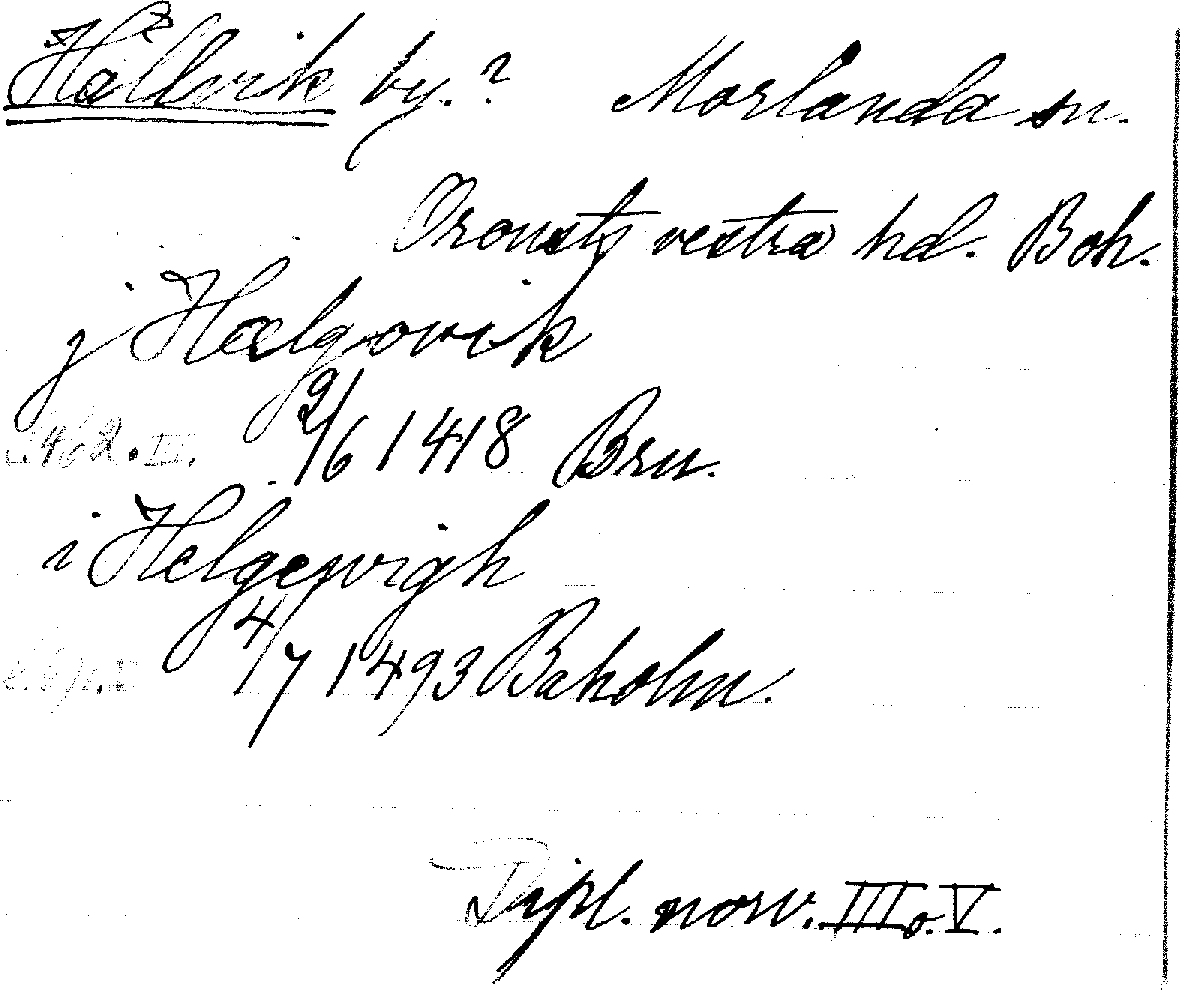 Hällvik by.? Morlanda sn.
Orousts vestra hd. Boh.
j Hælgovik
s. 462. III. 2/6 1418 Bru.
i Helgewigh
4/7 1493 Baholm.
Dipl. norv. III o. V.